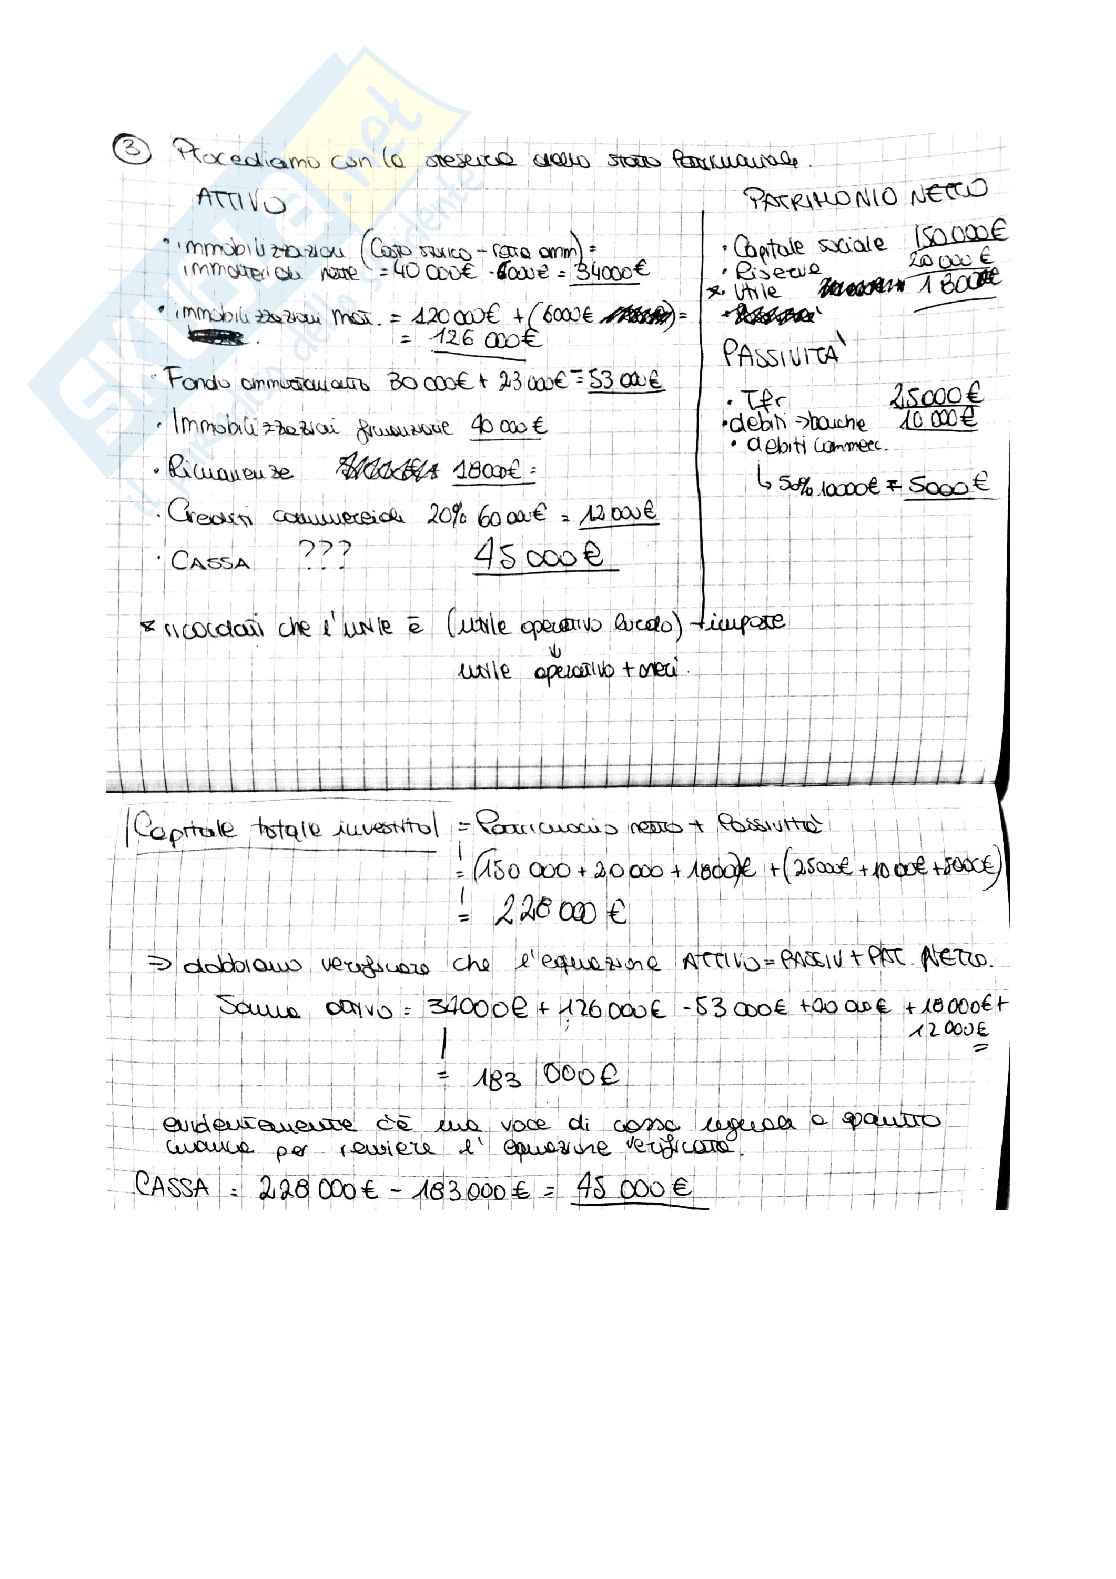 ③ Procediamo con la stesura dello stato Patrimoniale.
ATTIVO
• immobilizzazioni (Costo storico - fondo amm) =
immateriali nette = 40 000€ - 6000€ = 34000€
• immobilizzazioni mat. = 120 000€ + (6000€ ) =
= 126 000€
• Fondo ammortamento 30 000€ + 23 000€ = 53 000€
• Immobilizzazioni finanziarie 40 000€
• Rimanenze 18000€ =
• Crediti commerciali 20% 60 000€ = 12 000€
• CASSA ??? 45 000€
PATRIMONIO NETTO
• Capitale sociale 150 000€
• Riserve 20 000€
* Utile 18000€
PASSIVITA'
• Tfr 25000€
• debiti -> banche 10 000€
• debiti commerc.
↳ 50% 10000€ = 5000€
* ricordarsi che l'utile è (utile operativo lordo) - imposte
↓
utile operativo + oneri.
|Capitale totale investito| = Patrimonio netto + Passività
= (150 000 + 20 000 + 18000)€ + (25000€ + 10 000€ + 5000€)
= 228 000 €
=> dobbiamo verificare che l'equazione ATTIVO = PASSIV + PAT. NETTO.
Somma attivo = 34000€ + 126 000€ - 53 000€ + 40 000€ + 18000€ +
12 000€
= 183 000€
evidentemente c'è una voce di cassa uguale a quanto
manca per rendere l'equazione verificata.
CASSA = 228 000€ - 183 000€ = 45 000€
SKUOLA.net